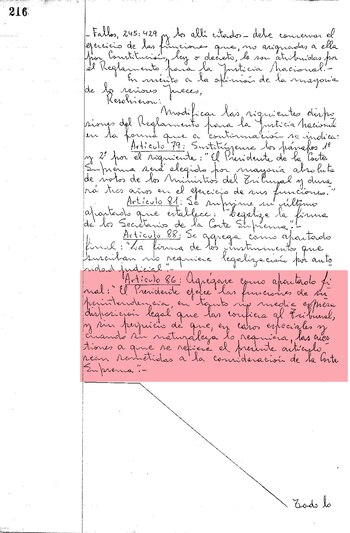 216
- Fallos, 245:429 y lo allí citado - debe conservar el
ejercicio de las funciones que, no asignadas a ella
por Constitución, ley o decreto, le son atribuidas por
el Reglamento para la Justicia Nacional.-
En mérito a la opinión de la mayoría
de los señores Jueces,
Resolvieron:
Modificar las siguientes dispo
siciones del Reglamento para la Justicia Nacional
en la forma que a continuación se indica:
Artículo 79: Sustitúyense los párrafos 1º
y 2º por el siguiente: "El Presidente de la Corte
Suprema será elegido por mayoría absoluta
de votos de los Ministros del Tribunal y dura
rá tres años en el ejercicio de sus funciones."
Artículo 81: Se suprime su último
apartado que establece: "Legaliza la firma
de los Secretarios de la Corte Suprema".-
Artículo 88: Se agrega como apartado
final: "La firma de los instrumentos que
suscriban no requiere legalización por auto
ridad judicial".-
Artículo 86: Agrégase como apartado fi
nal: "El Presidente ejerce las funciones de su
perintendencia, en tanto no medie expresa
disposición legal que las confiera al Tribunal,
y sin perjuicio de que, en casos especiales y
cuando su naturaleza lo requiera, las cues
tiones a que se refiere el presente artículo
sean sometidas a la consideración de la Corte
Suprema".-
Todo lo